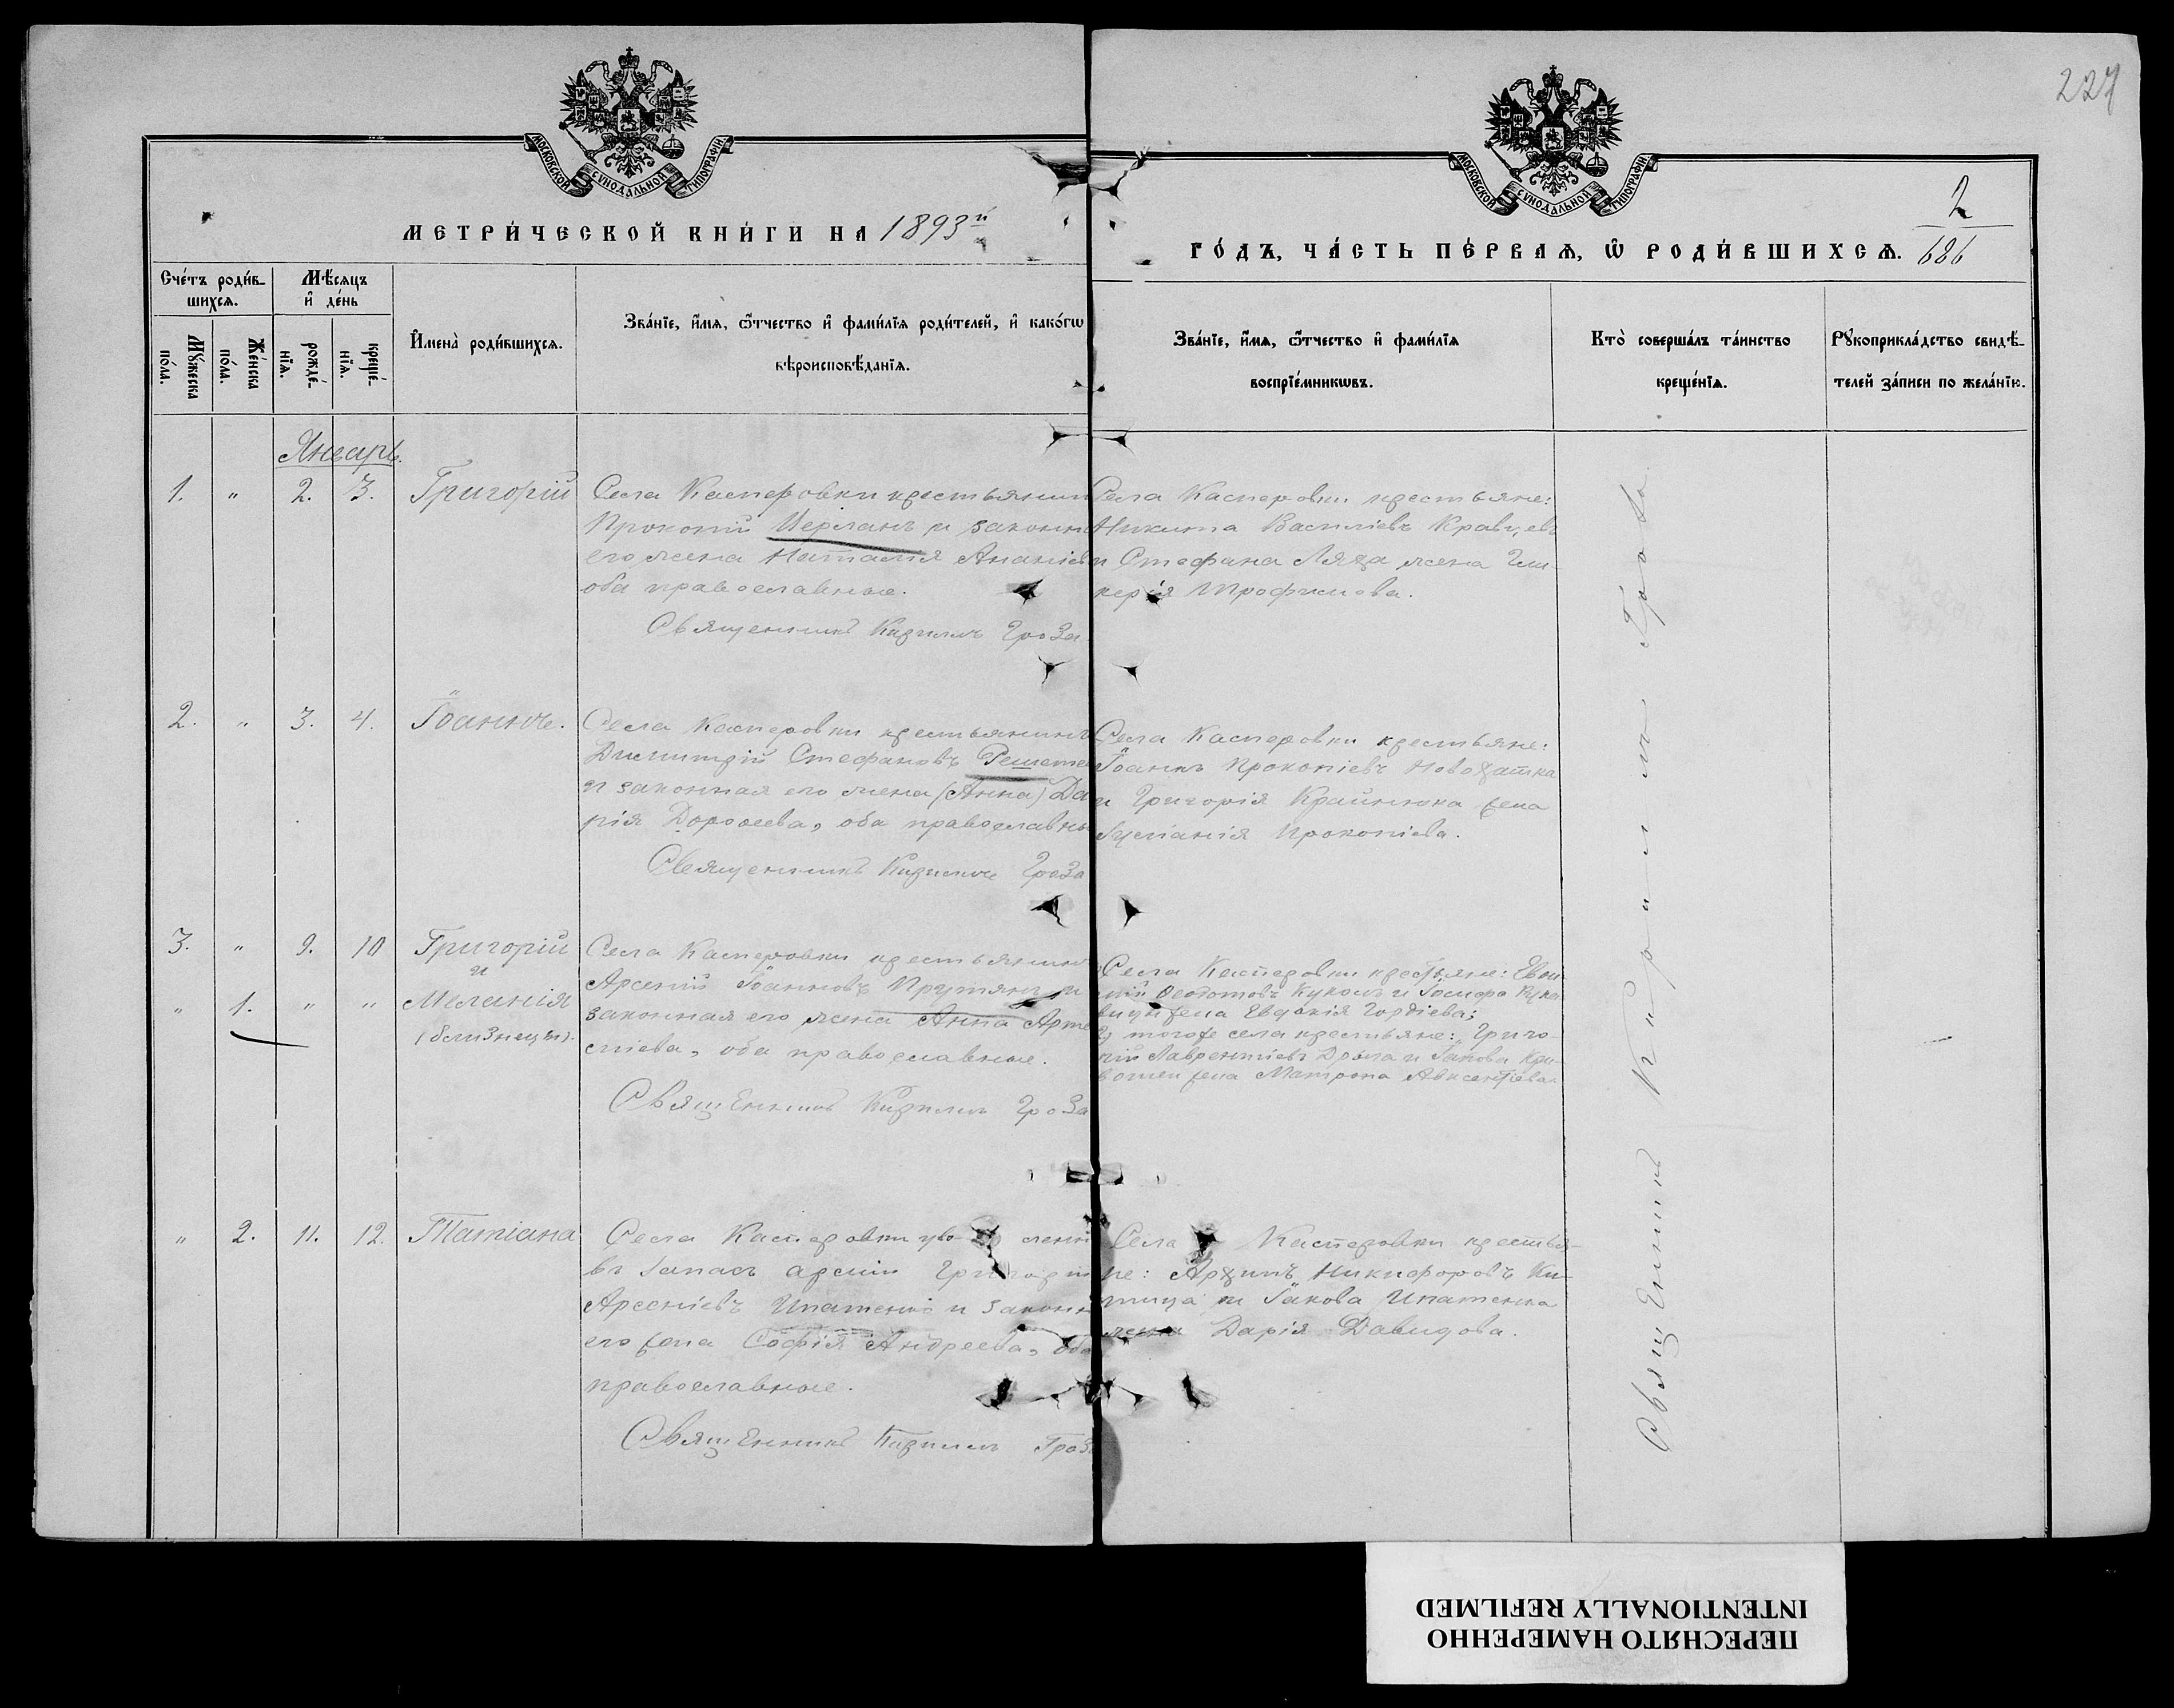 227
МОСКОВСКОЙ СѴНОДАЛЬНОЙ ТИПОГРАФІИ
МОСКОВСКОЙ СѴНОДАЛЬНОЙ ТИПОГРАФІИ
МЕТРИ́ЧЕСКОЙ КНИ́ГИ НА 1893й
ГО́ДЪ, ЧА́СТЬ ПЕ́РВАѦ, Ѡ҆ РОДИ́ВШИХСѦ.
2
686
Сче́тъ роди́в-
шихсѧ.
Мѣ́сѧцъ
и҆ де́нь
Мꙋ́жеска
по́ла.
Же́нска
по́ла.
рожде́-
нїѧ.
креще́-
нїѧ.
И҆мена̀ роди́вшихсѧ.
Зва́нїе, и҆́мѧ, ѻ҆́тчество и҆ фами́лїѧ роди́телей, и҆ како́гѡ
вѣроисповѣ́данїѧ.
Зва́нїе, и҆́мѧ, ѻ҆́тчество и҆ фами́лїѧ
воспрїе́мникѡвъ.
Кто̀ соверша́лъ та́инство
креще́нїѧ.
Рꙋкоприкла́дство свидѣ́-
телей за́писи по жела́нїю.
Январь.
1. " 2. 3. Григорій
Села Касперовки крестьянин
Прокопій и законн
его жена Наталія Ананіев
оба православные.
Священникъ Кириллъ Гроза
Села Касперовки крестьяне:
Никита Василіевъ Кравцевъ
и Стефана жена Гли-
керія Трофимова.
2. " 3. 4. Іоаннъ.
Села Касперовки крестьянинъ
Димитрій Стефановъ Решете
и законная его жена (Анна) Да
рія Дороѳеева, оба православны
Священникъ Кириллъ Гроза
Села Касперовки крестьяне:
Іоаннъ Прокопіевъ Новохатка
и Григорія Крайнюка жена
Прокопіева.
3. " 9. 10 Григорій
и
" 1. " " Меланія
(близнецы).
Села Касперовки крестьянинъ
Арсеній Іоанновъ Прутянъ и
законная его жена Анна Арте
міева, оба православные.
Священникъ Кириллъ Гроза
Села Касперовки крестьяне: Евѳи-
мій Ѳеодотовъ и
жена Евдокія Гордіева;
2) тогоже села крестьяне: Григо-
рій Лаврентіевъ и Іакова
жена Матрона Авксентіева.
" 2. 11. 12. Татіана
Села Касперовки уво лен
въ запасъ арміи Григорій
Арсеніевъ Ипатенко и законн
его жена Софія Андреева, оба
православные.
Священникъ Кириллъ Гроз
Села Касперовки крестья-
не: Архипъ Никифоровъ Ки-
рица и Іакова Ипатенка
жена Дарія Давидова.
Священникъ Кириллъ Гроза
ПЕРЕСНЯТО НАМЕРЕННО
INTENTIONALLY REFILMED